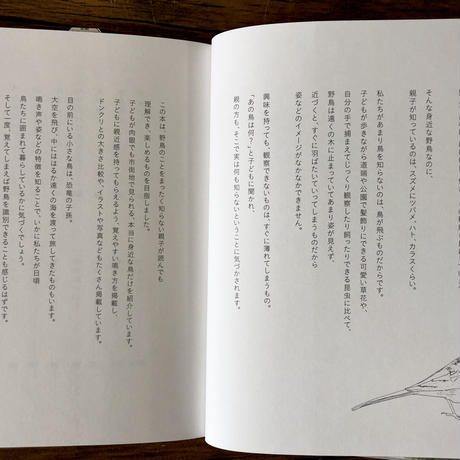 そんな身近な野鳥なのに、
親子が知っているのは、スズメにツバメ、ハト、カラスくらい。
私たちがあまり鳥を知らないのは、鳥が飛ぶものだからです。
子どもが歩きながら道端や公園で髪飾りにできる可愛い草花や、
自分の手で捕まえてじっくり観察したり飼ったりできる昆虫に比べて、
野鳥は遠くの木に止まっていてあまり姿が見えず、
近づくと、すぐに羽ばたいていってしまうものだから
姿などのイメージがなかなかできません。
興味を持っても、観察できないものは、すぐに薄れてしまうもの。
「あの鳥は何?」と子どもに聞かれ、
親の方も、そこで実は何も知らないということに気づかされます。
この本は、野鳥のことをまったく知らない親子が読んでも
理解でき、楽しめるものを目指しました。
子どもが肉眼でも市街地で見られる、本当に身近な鳥だけを紹介しています。
子どもに親近感を持ってもらえるよう、覚えやすい鳴き方を掲載し、
ドングリとの大きさ比較や、イラストや写真などもたくさん掲載しています。
目の前にいる小さな鳥は、恐竜の子孫。
大空を飛び、中にははるか遠くの海を渡って旅してきたものもいます。
鳴き声や姿などの特徴を知ることで、いかに私たちが日頃
鳥たちに囲まれて暮らしているかに気づくでしょう。
そして一度、覚えてしまえば野鳥を識別できることも感じるはずです。